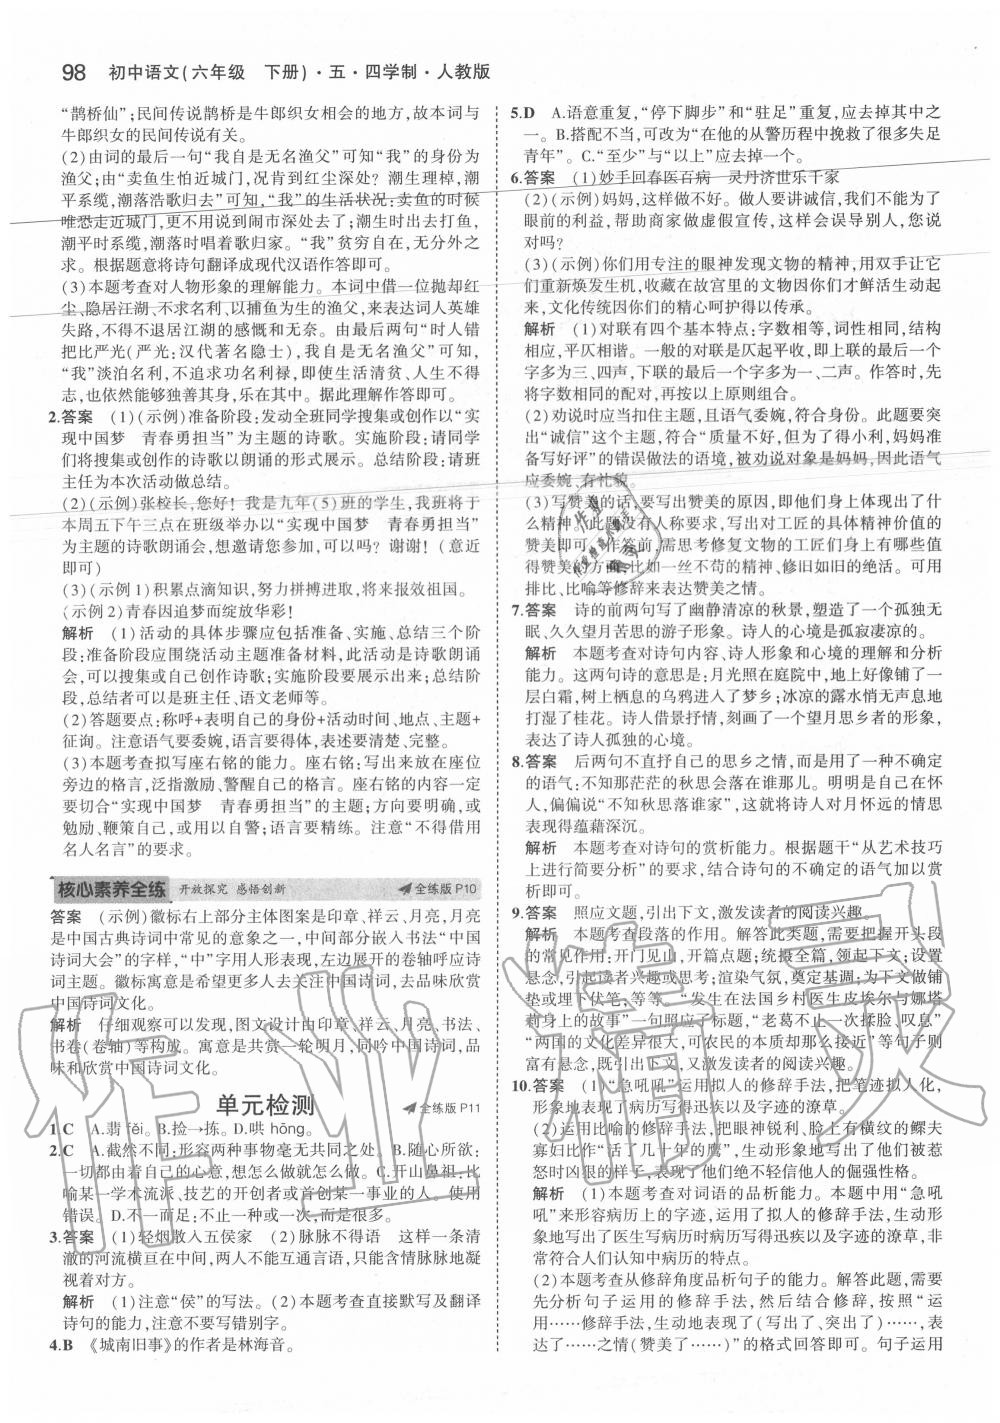 98 初中语文(六年级 下册)·五·四学制·人教版
“鹊桥仙”;民间传说鹊桥是牛郎织女相会的地方,故本词与
牛郎织女的民间传说有关。
(2)由词的最后一句“我自是无名渔父”可知“我”的身份为
渔父;由“卖鱼生怕近城门,况肯到红尘深处?潮生理棹,潮
平系缆,潮落浩歌归去”可知,“我”的生活状况:卖鱼的时候
唯恐走近城门,更不用说到闹市深处去了;潮生时划船出去,
潮平时系缆,潮落时唱着歌归家。“我”贫穷自在,无分外之
求。根据题意将诗句翻译成现代汉语作答即可。
(3)本题考查对人物形象的理解能力。本词中借一位抛却红
尘、隐居江湖、不求名利、以捕鱼为生的渔父,来表达词人英雄
失路,不得不退居江湖的感慨和无奈。由最后两句“时人错
把比严光(严光:汉代著名隐士),我自是无名渔父”可知,
“我”淡泊名利,不追求功名利禄,即使人生不如意,壮志不得
志,也依然能够独善其身,乐在其中。据此理解作答即可。
2.答案 (1)(示例)准备阶段:发动全班同学搜集或创作以“实
现中国梦 青春勇担当”为主题的诗歌。实施阶段:请同学
们将搜集或创作的诗歌以朗诵的形式展示。总结阶段:请班
主任为本次活动做总结。
(2)(示例)张校长,您好!我是九年(5)班的学生,我班将于
本周五下午三点在班级举办以“实现中国梦 青春勇担当”
为主题的诗歌朗诵会,想邀请您参加,可以吗?谢谢!(意近
即可)
(3)(示例1)积累点滴知识,努力拼搏进取,将来报效祖国。
(示例2)青春因追梦而绽放华彩!
解析 (1)活动的具体步骤应包括准备、实施、总结三个阶
段;准备阶段应围绕活动主题准备材料,此活动是诗歌朗诵
会,可以搜集或自己创作诗歌;实施阶段要展示出来;总结阶
段,总结者可以是班主任、语文老师等。
(2)答题要点:称呼+表明自己的身份+活动时间、地点、主题+
征询。注意语气要委婉,语言要得体,表述要清楚、完整。
(3)本题考查拟写座右铭的能力。座右铭:写出来放在座位
旁边的格言,泛指激励、警醒自己的格言。座右铭的内容一定
要切合“实现中国梦 青春勇担当”的主题;方向要明确,或
勉励、鞭策自己,或用以自警;语言要精练。注意“不得借用
名人名言”的要求。
核心素养全练 开放探究 感悟创新 全练版P10
答案 (示例)徽标右上部分主体图案是印章、祥云、月亮,月亮
是中国古典诗词中常见的意象之一,中间部分嵌入书法“中国
诗词大会”的字样,“中”字用人形表现,左边展开的卷轴呼应诗
词主题。徽标寓意希望更多人去关注中国诗词,去品味欣赏
中国诗词文化。
解析 仔细观察可以发现,图文设计由印章、祥云、月亮、书法、
书卷(卷轴)等构成。寓意是共赏一轮明月,同吟中国诗词,品
味和欣赏中国诗词文化。
单元检测 全练版P11
1.C A.翡 fěi。B.捡→拣。D.哄 hōng。
2.C A.截然不同:形容两种事物毫无共同之处。B.随心所欲:
一切都由着自己的心意,想怎么做就怎么做。C.开山鼻祖:比
喻某一学术流派、技艺的开创者或首创某一事业的人。使用
错误。D.不一而足:不止一种或一次,而是很多。
3.答案 (1)轻烟散入五侯家 (2)脉脉不得语 这样一条清
澈的河流横亘在中间,两人不能互通言语,只能含情脉脉地凝
视着对方。
解析 (1)注意“侯”的写法。(2)本题考查直接默写及翻译
诗句的能力,注意不要写错别字。
4.B 《城南旧事》的作者是林海音。
5.D A.语意重复,“停下脚步”和“驻足”重复,应去掉其中之
一。B.搭配不当,可改为“在他的从警历程中挽救了很多失足
青年”。C.“至少”与“以上”应去掉一个。
6.答案 (1)妙手回春医百病 灵丹济世乐千家
(2)(示例)妈妈,这样做不好。做人要讲诚信,我们不能为了
眼前的利益,帮助商家做虚假宣传,这样会误导别人,您说
对吗?
(3)(示例)你们用专注的眼神发现文物的精神,用双手让它
们重新焕发生机,收藏在故宫里的文物因你们才鲜活生动起
来,文化传统因你们的精心呵护得以传承。
解析 (1)对联有四个基本特点:字数相等,词性相同,结构
相应,平仄相谐。一般的对联是仄起平收,即上联的最后一个
字多为三、四声,下联的最后一个字多为一、二声。作答时,先
将字数相同的配对,再按以上原则组合。
(2)劝说时应当扣住主题,且语气委婉,符合身份。此题要突
出“诚信”这个主题,符合“质量不好,但为了得小利,妈妈准
备写好评”的错误做法的语境,被劝说对象是妈妈,因此语气
应委婉、有礼貌。
(3)写赞美的话,要写出赞美的原因,即他们身上体现出了什
么精神,此题没有人称要求,写出对工匠的具体精神价值的
赞美即可。作答前,需思考修复文物的工匠们身上有哪些值
得赞美的精神,比如一丝不苟的精神、修旧如旧的绝活。可用
排比、比喻等修辞来表达赞美之情。
7.答案 诗的前两句写了幽静清凉的秋景,塑造了一个孤独无
眠、久久望月苦思的游子形象。诗人的心境是孤寂凄凉的。
解析 本题考查对诗句内容、诗人形象和心境的理解和分析
能力。这两句诗的意思是:月光照在庭院中,地上好像铺了一
层白霜,树上栖息的乌鸦进入了梦乡;冰凉的露水悄无声息地
打湿了桂花。诗人借景抒情,刻画了一个望月思乡者的形象,
表达了诗人孤独的心境。
8.答案 后两句不直抒自己的思乡之情,而是用了一种不确定
的语气:不知那茫茫的秋思会落在谁那儿。明明是自己在怀
人,偏偏说“不知秋思落谁家”,这就将诗人对月怀远的情思
表现得蕴藉深沉。
解析 本题考查对诗句的赏析能力。根据题干“从艺术技巧
上进行简要分析”的要求,结合诗句的不确定的语气加以赏
析即可。
9.答案 照应文题,引出下文,激发读者的阅读兴趣。
解析 本题考查段落的作用。解答此类题,需要掌握开头段
的常见作用:开门见山,开篇点题;统摄全篇,领起下文;设置
悬念,引起读者兴趣或思考;渲染气氛,奠定基调;为下文做铺
垫或埋下伏笔,等等。“发生在法国乡村医生皮埃尔与娜塔
莉身上的故事”一句照应了标题,“老葛不止一次揉脸、叹息”
“两国的文化差异很大,可农民的本质却那么接近”等句子则
富有悬念,既引出下文,又激发读者的阅读兴趣。
10.答案 (1)“急吼吼”运用拟人的修辞手法,把笔迹拟人化,
形象地表现了病历写得迅速以及字迹的潦草。
(2)运用比喻的修辞手法,把眼神锐利、脸上有横纹的鳏夫
寡妇比作“活了几十岁的鹰”,生动形象地写出他们被惹
怒时凶狠的样子,表现了他们绝不轻信他人的倔强性格。
解析 (1)本题考查对词语的品析能力。本题中用“急吼
吼”来形容病历上的字迹,运用了拟人的修辞手法,生动形
象地写出了医生写病历时病历写得迅速以及字迹的潦草,非
常符合人们认知中病历的特点。
(2)本题考查从修辞角度品析句子的能力。解答此题,需要
先分析句子运用的修辞手法,然后结合修辞,按照“运
用……的修辞手法,生动形象地(写出了、突出了)……,表
达了……之情(赞美了……)”的格式回答即可。句子运用